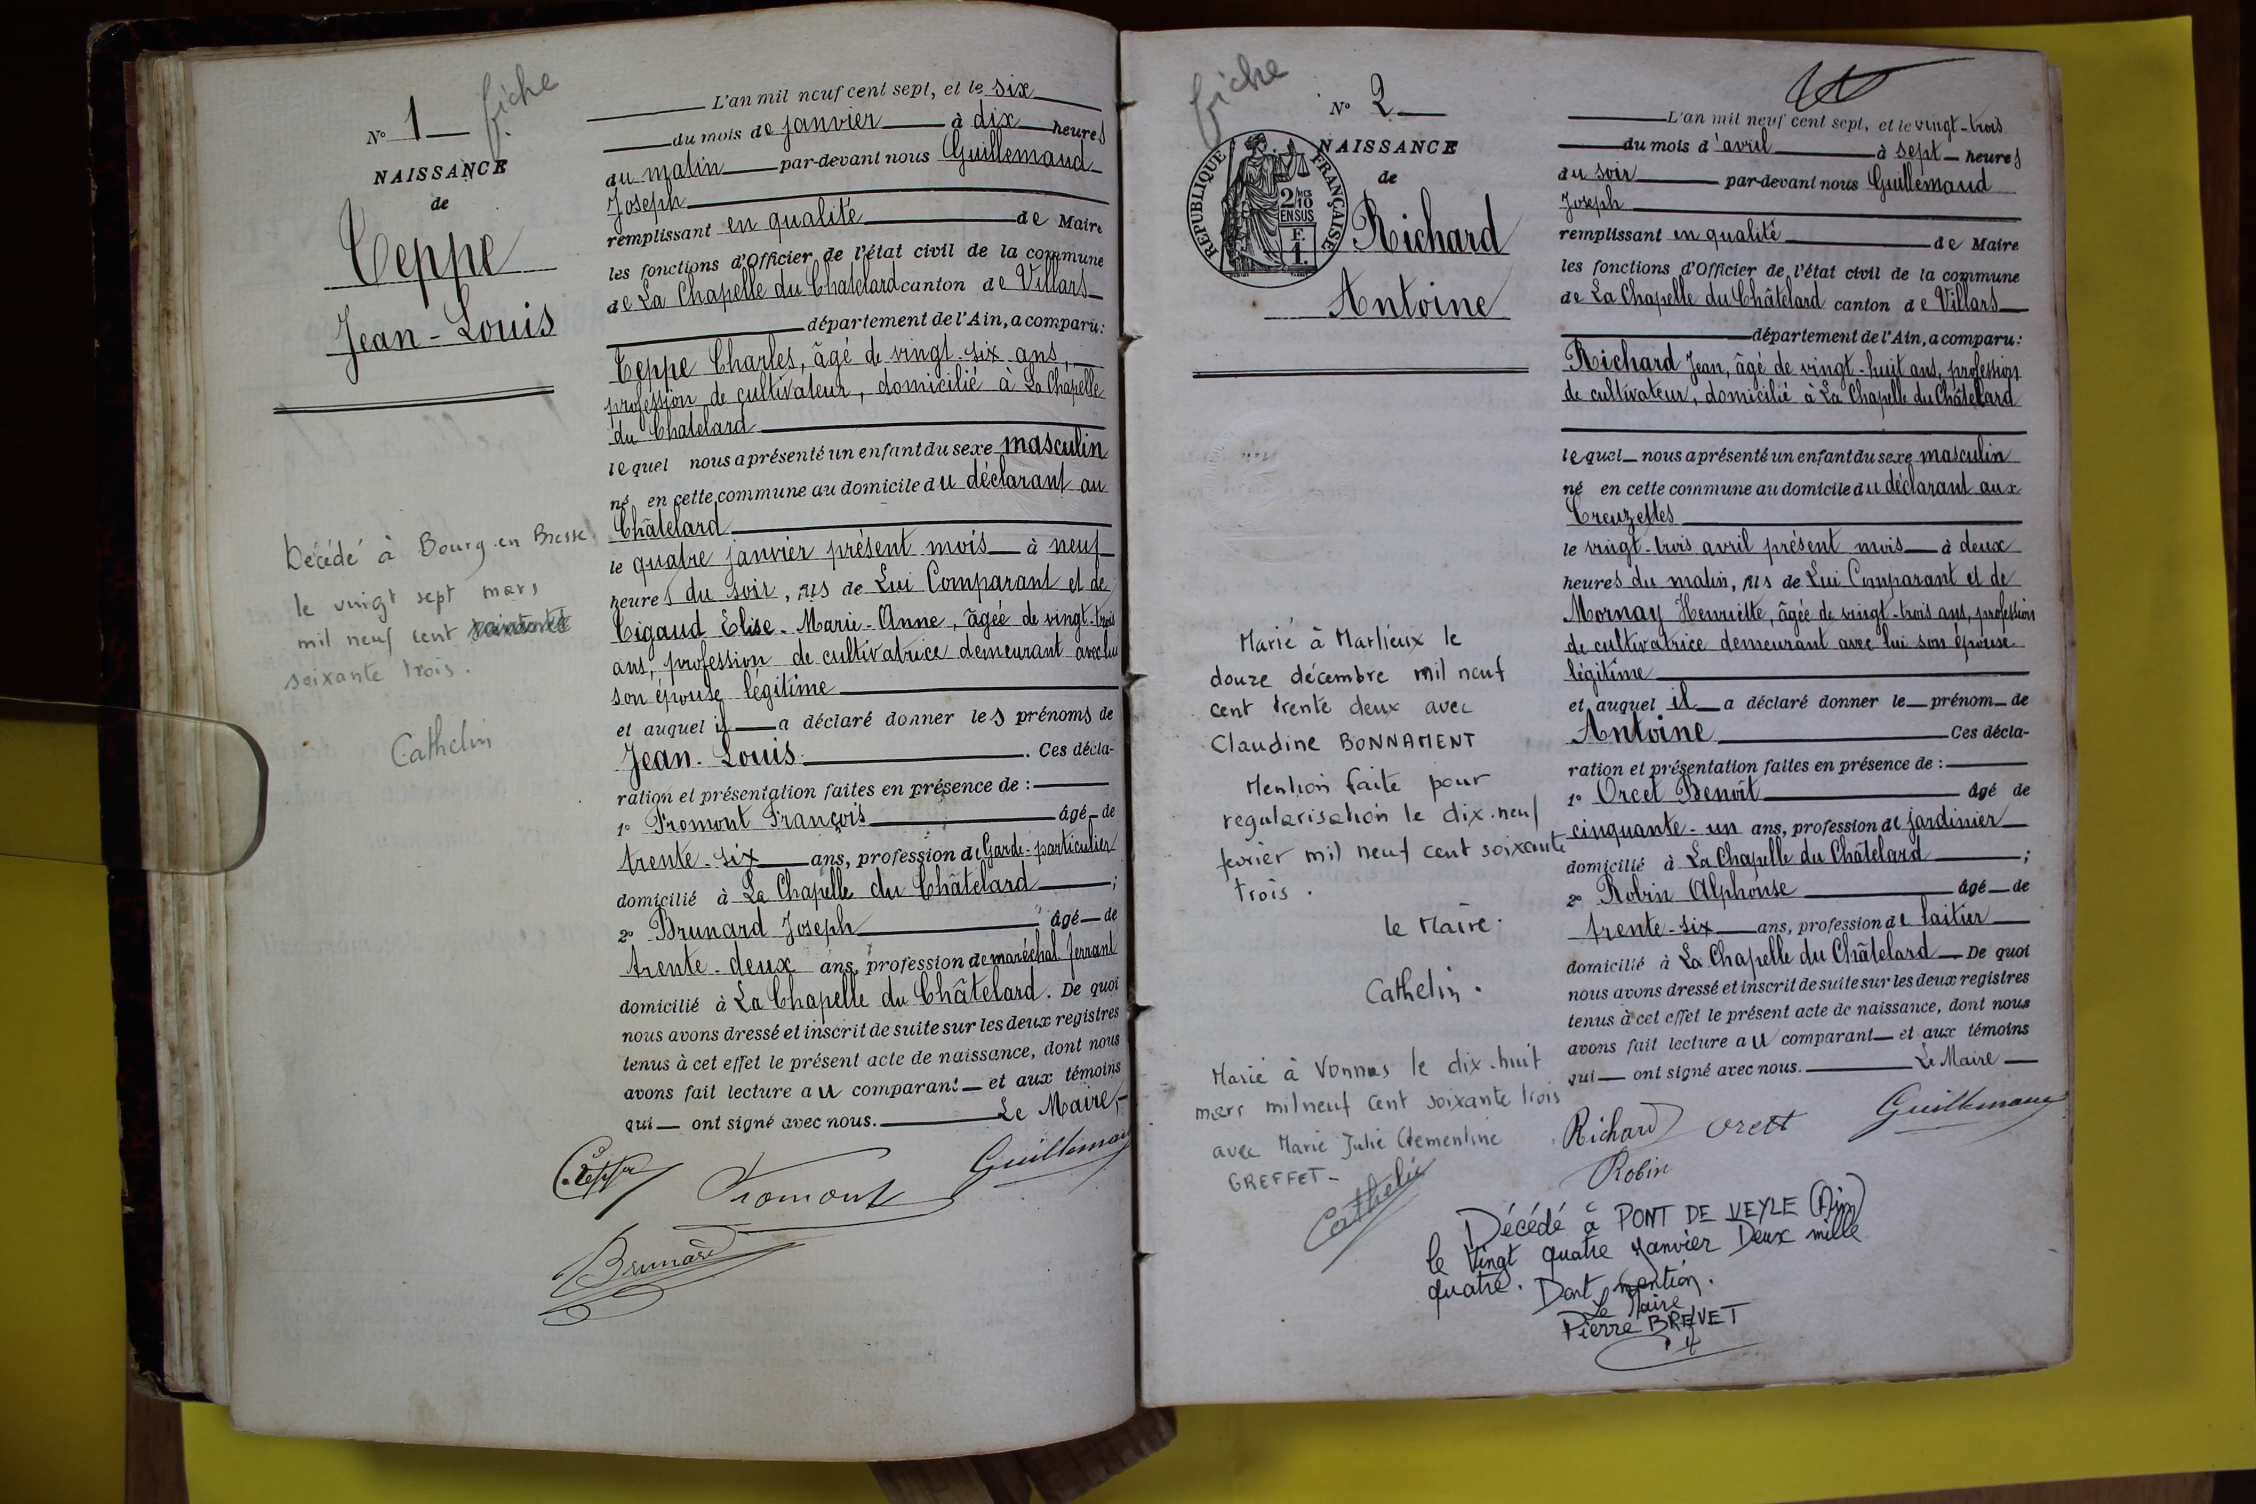 fiche
N° 1
NAISSANCE
de
Teppe
Jean-Louis
Décédé à Bourg-en Bresse
le vingt sept mars
mil neuf cent
soixante trois.
Cathelin
L'an mil neuf cent sept, et le six
du mois de janvier à dix heures
du matin par-devant nous Guillemaud
Joseph
remplissant en qualité de Maire
les fonctions d'Officier de l'état civil de la commune
de La Chapelle du Chatelard canton de Villars
département de l'Ain, a comparu:
Teppe Charles, âgé de vingt-six ans,
profession de cultivateur, domicilié à La Chapelle
du Chatelard
lequel nous a présenté un enfant du sexe masculin
né en cette commune au domicile du déclarant au
Châtelard
le quatre janvier présent mois à neuf
heures du soir, fils de Lui Comparant et de
Cigaud Elise-Marie-Anne, âgée de vingt-trois
ans, profession de cultivatrice demeurant avec lui
son épouse légitime
et auquel il a déclaré donner les prénoms de
Jean-Louis. Ces décla-
ration et présentation faites en présence de :
1° Fromont François âgé de
trente-six ans, profession de Garde-particulier
domicilié à La Chapelle du Châtelard ;
2° Brunard Joseph âgé de
trente-deux ans, profession de maréchal ferrant
domicilié à La Chapelle du Châtelard. De quoi
nous avons dressé et inscrit de suite sur les deux registres
tenus à cet effet le présent acte de naissance, dont nous
avons fait lecture au comparant et aux témoins
qui ont signé avec nous. Le Maire,
C. Teppe Fromont Guillemaud
Brunard
fiche
N° 2
NAISSANCE
de
RÉPUBLIQUE FRANÇAISE
2/10
EN SUS
F.
1.
Richard
Antoine
Marié à Marlieux le
douze décembre mil neuf
cent trente deux avec
Claudine BONNAMENT
Mention faite pour
regularisation le dix-neuf
fevrier mil neuf cent soixante
trois.
le Maire.
Cathelin.
Marié à Vonnas le dix-huit
mars mil neuf cent soixante trois
avec Marie Julie Clementine
GREFFET-
Cathelin
L'an mil neuf cent sept, et le vingt-trois
du mois d'avril à sept heures
du soir par-devant nous Guillemaud
Joseph
remplissant en qualité de Maire
les fonctions d'Officier de l'état civil de la commune
de La Chapelle du Châtelard canton de Villars
département de l'Ain, a comparu:
Richard Jean, âgé de vingt-huit ans, profession
de cultivateur, domicilié à La Chapelle du Châtelard
lequel nous a présenté un enfant du sexe masculin
né en cette commune au domicile du déclarant aux
Creuzettes
le vingt-trois avril présent mois à deux
heures du matin, fils de Lui Comparant et de
Mornay Henriette, âgée de vingt-trois ans, profession
de cultivatrice demeurant avec lui son épouse
légitime
et auquel il a déclaré donner le prénom de
Antoine Ces décla-
ration et présentation faites en présence de :
1° Orcet Benoît âgé de
cinquante-un ans, profession de jardinier
domicilié à La Chapelle du Châtelard ;
2° Robin Alphonse âgé de
trente-six ans, profession de laitier
domicilié à La Chapelle du Châtelard De quoi
nous avons dressé et inscrit de suite sur les deux registres
tenus à cet effet le présent acte de naissance, dont nous
avons fait lecture au comparant et aux témoins
qui ont signé avec nous. Le Maire
Richard Orcet Guillemaud
Robin
Décédé à PONT DE VEYLE (Ain)
le Vingt quatre Janvier Deux mille
quatre. Dont mention.
Le Maire
Pierre BREVET